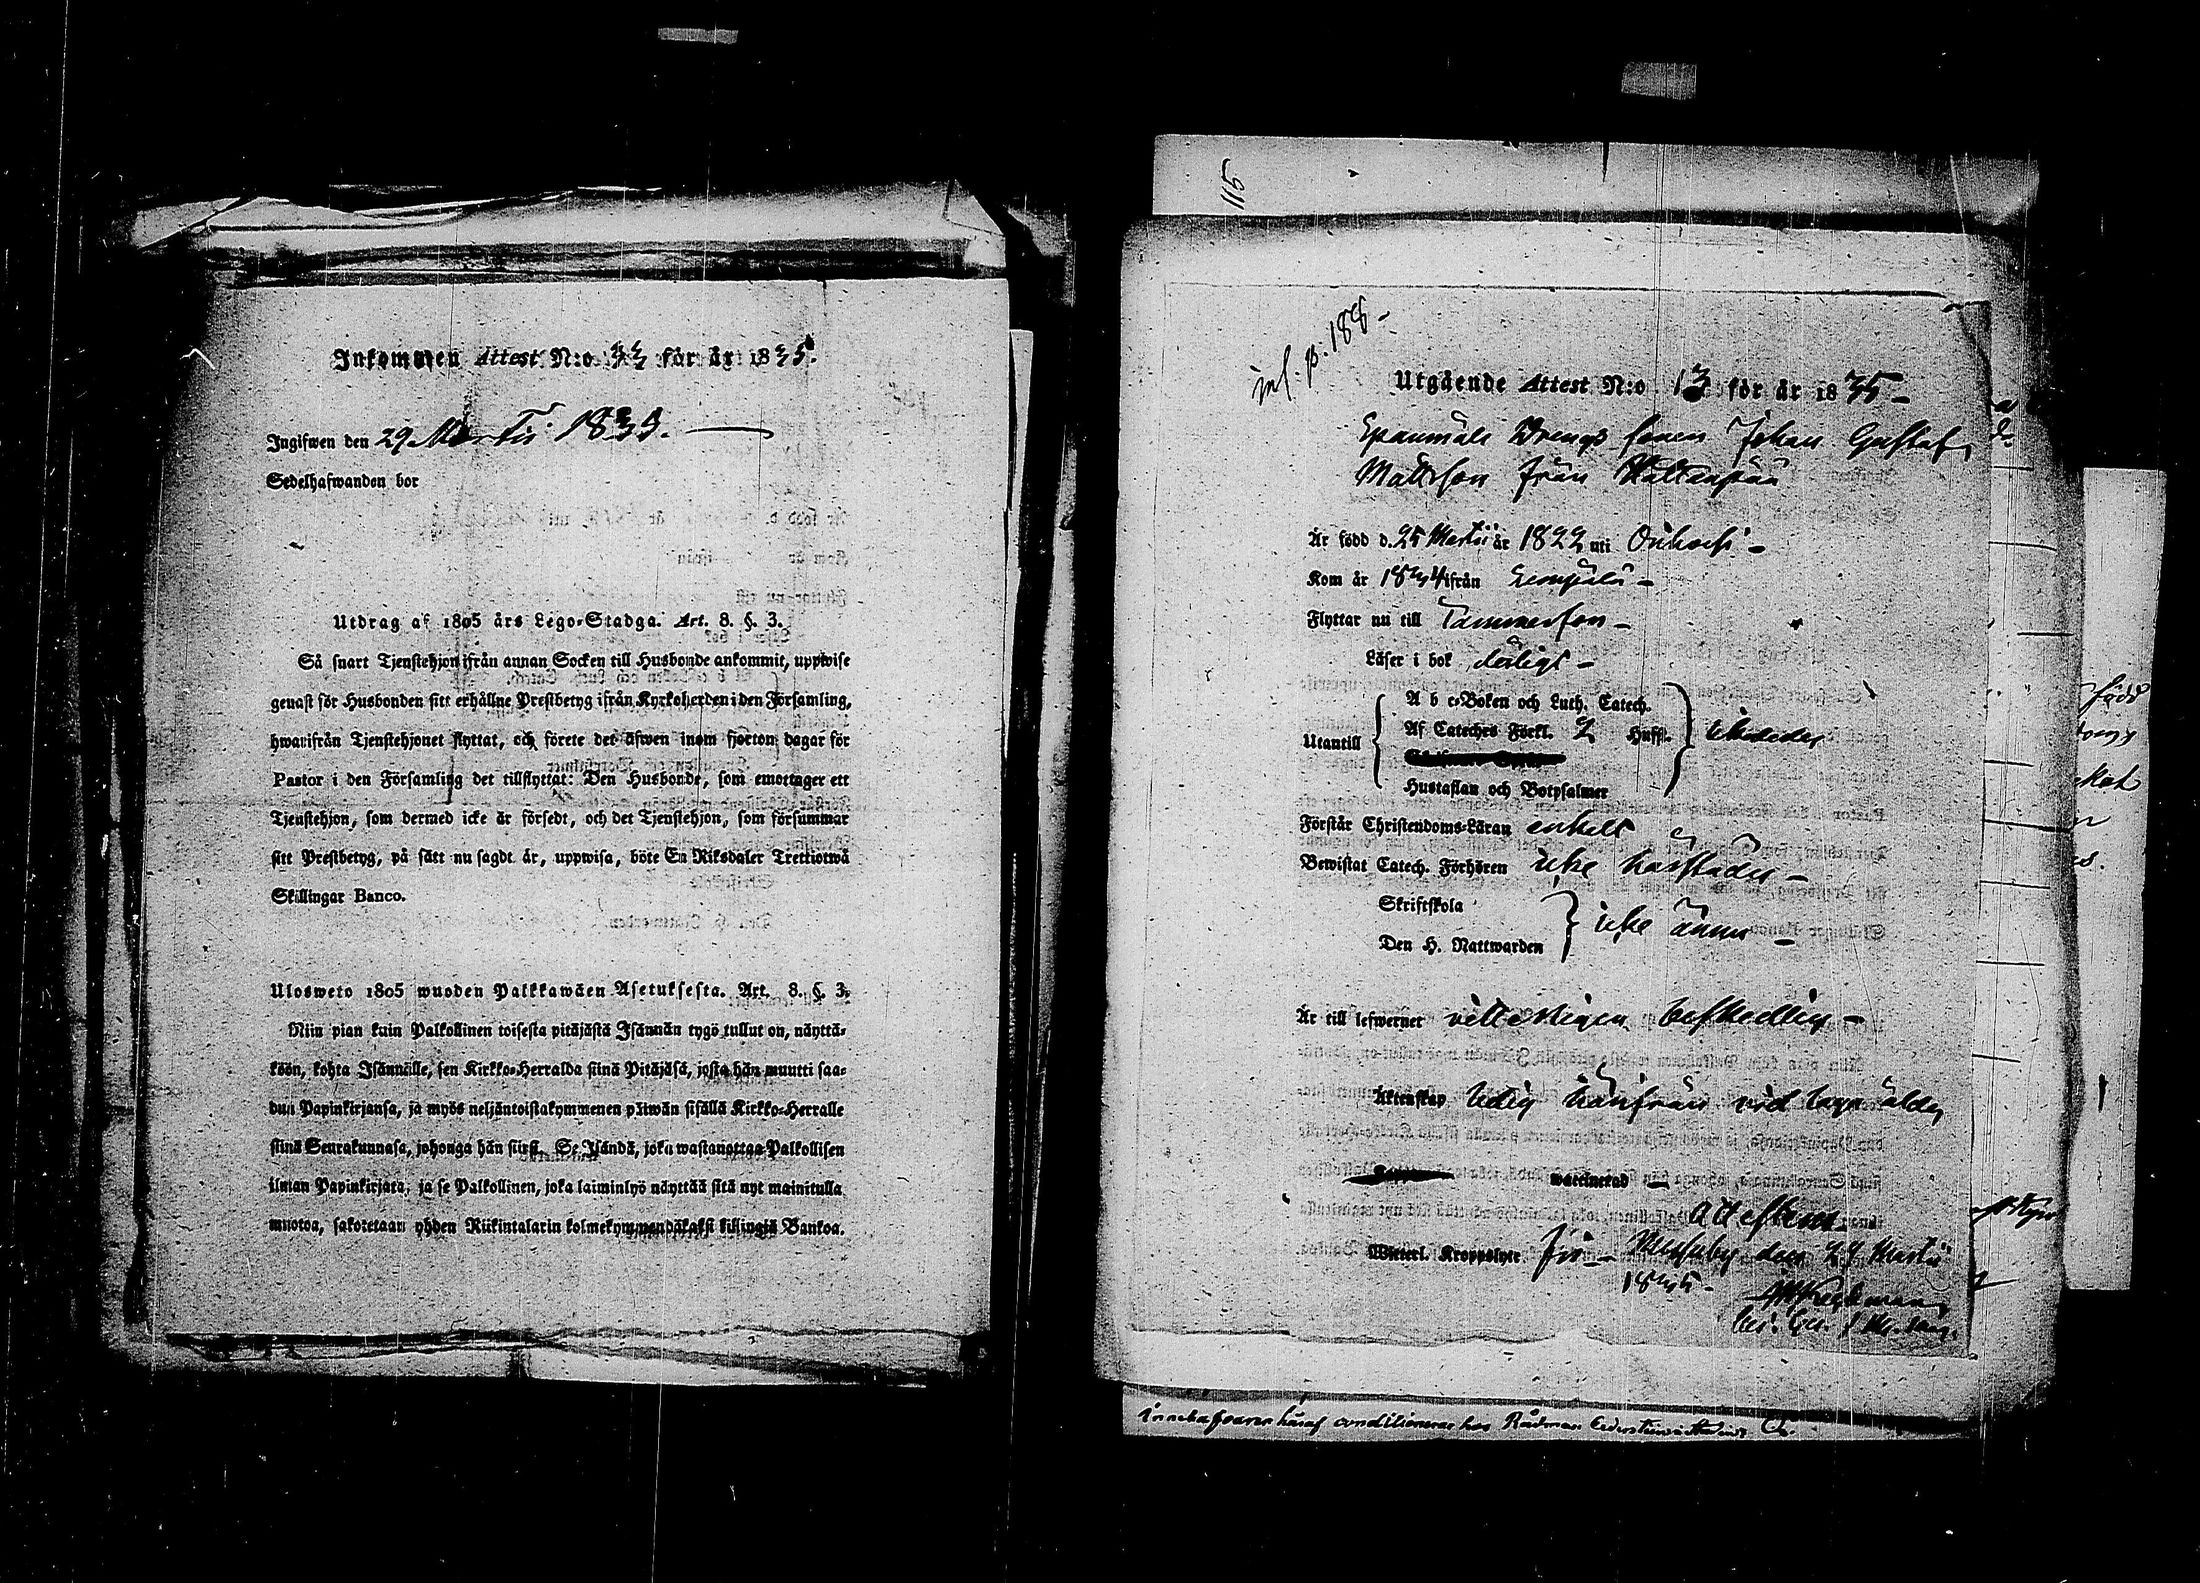 Inkommen Attest N:o 33 för år 1835.
Ingifwen den 29 Martii 1835.
Sedelhafwanden bor
Utdrag af 1805 års Lego-Stadga. Art. 8. §. 3.
Så snart Tjenstehjon ifrån annan Socken till Husbonde ankommit, uppwise
genast för Husbonden sitt erhållne Prestbetyg ifrån Kyrkoherden i den Församling,
hwarifrån Tjenstehjonet flyttat, och förete det äfwen inom fjorton dagar för
Pastor i den Församling det tillflyttat: Den Husbonde, som emottager ett
Tjenstehjon, som dermed icke är försedt, och det Tjenstehjon, som försummar
sitt Prestbetyg, på sätt nu sagdt är, uppwisa, böte En Riksdaler Trettiotwå
Skillingar Banco.
Ulosweto 1805 wuoden Palkkawäen Asetuksesta. Art. 8. §. 3.
Niin pian kuin Palkollinen toisesta pitäjästä Isännän tygö tullut on, näyttä-
köön, kohta Isännälle, sen Kirkko-Herralda siinä Pitäjäsä, josta hän muutti saa-
dun Papinkirjansa, ja myös neljäntoistakymmenen päiwän sisällä Kirkko-Herralle
siinä Seurakunnasa, johonga hän siirsi. Se Isändä, joka wastanottaa Palkollisen
ilman Papinkirjata, ja se Palkollinen, joka laiminlyö näyttää sitä nyt mainitulla
muotoa, sakotetaan yhden Riikintalarin kolmekymmendäkaksi killingiä Bankoa.
115
inf. p. 188
Utgående Attest N:o 13 för år 1835
Drengs sonen Johan Gustaf
Mattsson från
Är född d. 25 Martii år 1822 uti Orihvesi
Kom år 1834 ifrån Lempälä
Flyttar nu till Tammerfors
Läser i bok dåligt
A b c-Boken och Luth. Catech.
Utantill Af Cateches Förkl. 2 Hufst.
Hustaflan och Botpsalmer
Förstår Christendoms-Läran enkelt
Bewistat Catech. Förhören icke härstädes
Skriftskola
Den H. Nattwarden icke ännu
Är till lefwerner beskedlig
Äktenskap ledig härifrån vid laga ålder
waccinerad
Attesterar
Witterl. Kroppslyte Fri Messuby den 29 Martii
1835
innehafvaren häraf conditionerar hos Rådman